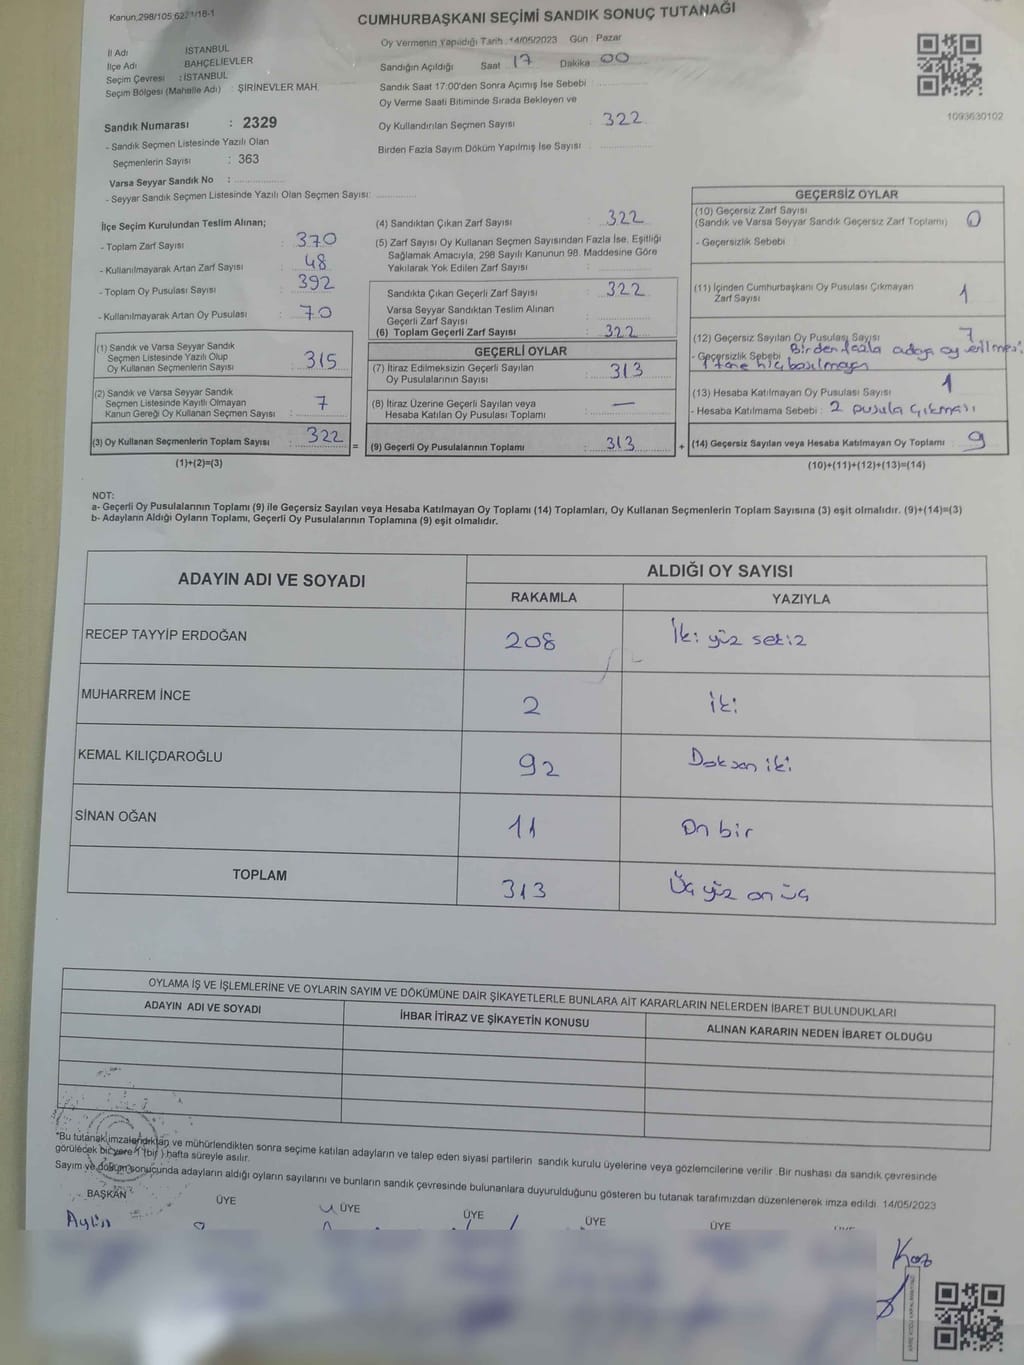 Kanun,298/105
CUMHURBAŞKANI SEÇİMİ SANDIK SONUÇ TUTANAĞI
İl Adı : İSTANBUL
İlçe Adı : BAHÇELİEVLER
Seçim Çevresi : İSTANBUL
Seçim Bölgesi (Mahalle Adı) : ŞİRİNEVLER MAH.
Sandık Numarası : 2329
- Sandık Seçmen Listesinde Yazılı Olan
Seçmenlerin Sayısı : 363
Varsa Seyyar Sandık No :
- Seyyar Sandık Seçmen Listesinde Yazılı Olan Seçmen Sayısı:
Oy Vermenin Yapıldığı Tarih : 14/05/2023 Gün : Pazar
Sandığın Açıldığı Saat 17 Dakika 00
Sandık Saat 17:00'den Sonra Açımış İse Sebebi
Oy Verme Saati Bitiminde Sırada Bekleyen ve
Oy Kullandırılan Seçmen Sayısı : 322
Birden Fazla Sayım Döküm Yapılmış İse Sayısı
1093630102
İlçe Seçim Kurulundan Teslim Alınan;
- Toplam Zarf Sayısı : 370
- Kullanılmayarak Artan Zarf Sayısı : 48
- Toplam Oy Pusulası Sayısı : 392
- Kullanılmayarak Artan Oy Pusulası : 70
(1) Sandık ve Varsa Seyyar Sandık
Seçmen Listesinde Yazılı Olup
Oy Kullanan Seçmenlerin Sayısı : 315
(2) Sandık ve Varsa Seyyar Sandık
Seçmen Listesinde Kayıtlı Olmayan
Kanun Gereği Oy Kullanan Seçmen Sayısı : 7
(3) Oy Kullanan Seçmenlerin Toplam Sayısı : 322
(1)+(2)=(3)
(4) Sandıktan Çıkan Zarf Sayısı : 322
(5) Zarf Sayısı Oy Kullanan Seçmen Sayısından Fazla İse, Eşitliği
Sağlamak Amacıyla, 298 Sayılı Kanunun 98. Maddesine Göre
Yakılarak Yok Edilen Zarf Sayısı :
Sandıkta Çıkan Geçerli Zarf Sayısı : 322
Varsa Seyyar Sandıktan Teslim Alınan
Geçerli Zarf Sayısı
(6) Toplam Geçerli Zarf Sayısı : 322
GEÇERLİ OYLAR
(7) İtiraz Edilmeksizin Geçerli Sayılan
Oy Pusulalarının Sayısı : 313
(8) İtiraz Üzerine Geçerli Sayılan veya
Hesaba Katılan Oy Pusulası Toplamı : —
(9) Geçerli Oy Pusulalarının Toplamı : 313
GEÇERSİZ OYLAR
(10) Geçersiz Zarf Sayısı
(Sandık ve Varsa Seyyar Sandık Geçersiz Zarf Toplamı) 0
- Geçersizlik Sebebi
(11) İçinden Cumhurbaşkanı Oy Pusulası Çıkmayan
Zarf Sayısı 1
(12) Geçersiz Sayılan Oy Pusulası Sayısı 7
- Geçersizlik Sebebi Birden fazla adaya oy verilmesi
1 tane hiç basılmayan
(13) Hesaba Katılmayan Oy Pusulası Sayısı 1
- Hesaba Katılmama Sebebi : 2 pusula çıkması
(14) Geçersiz Sayılan veya Hesaba Katılmayan Oy Toplamı : 9
(10)+(11)+(12)+(13)=(14)
NOT:
a- Geçerli Oy Pusulalarının Toplamı (9) ile Geçersiz Sayılan veya Hesaba Katılmayan Oy Toplamı (14) Toplamları, Oy Kullanan Seçmenlerin Toplam Sayısına (3) eşit olmalıdır. (9)+(14)=(3)
b- Adayların Aldığı Oyların Toplamı, Geçerli Oy Pusulalarının Toplamına (9) eşit olmalıdır.
ADAYIN ADI VE SOYADI ALDIĞI OY SAYISI
RAKAMLA YAZIYLA
RECEP TAYYİP ERDOĞAN 208 İki yüz sekiz
MUHARREM İNCE 2 iki
KEMAL KILIÇDAROĞLU 92 Doksan iki
SİNAN OĞAN 11 On bir
TOPLAM 313 Üç yüz on üç
OYLAMA İŞ VE İŞLEMLERİNE VE OYLARIN SAYIM VE DÖKÜMÜNE DAİR ŞİKAYETLERLE BUNLARA AİT KARARLARIN NELERDEN İBARET BULUNDUKLARI
ADAYIN ADI VE SOYADI İHBAR İTİRAZ VE ŞİKAYETİN KONUSU ALINAN KARARIN NEDEN İBARET OLDUĞU
*Bu tutanak imzalandıktan ve mühürlendikten sonra seçime katılan adayların ve talep eden siyasi partilerin sandık kurulu üyelerine veya gözlemcilerine verilir. Bir nushası da sandık çevresinde
görülecek bir yere 1 (bir) hafta süreyle asılır.
Sayım ve döküm sonuçunda adayların aldığı oyların sayılarını ve bunların sandık çevresinde bulunanlara duyurulduğunu gösteren bu tutanak tarafımızdan düzenlenerek imza edildi. 14/05/2023
BAŞKAN ÜYE ÜYE ÜYE ÜYE ÜYE
Aylin